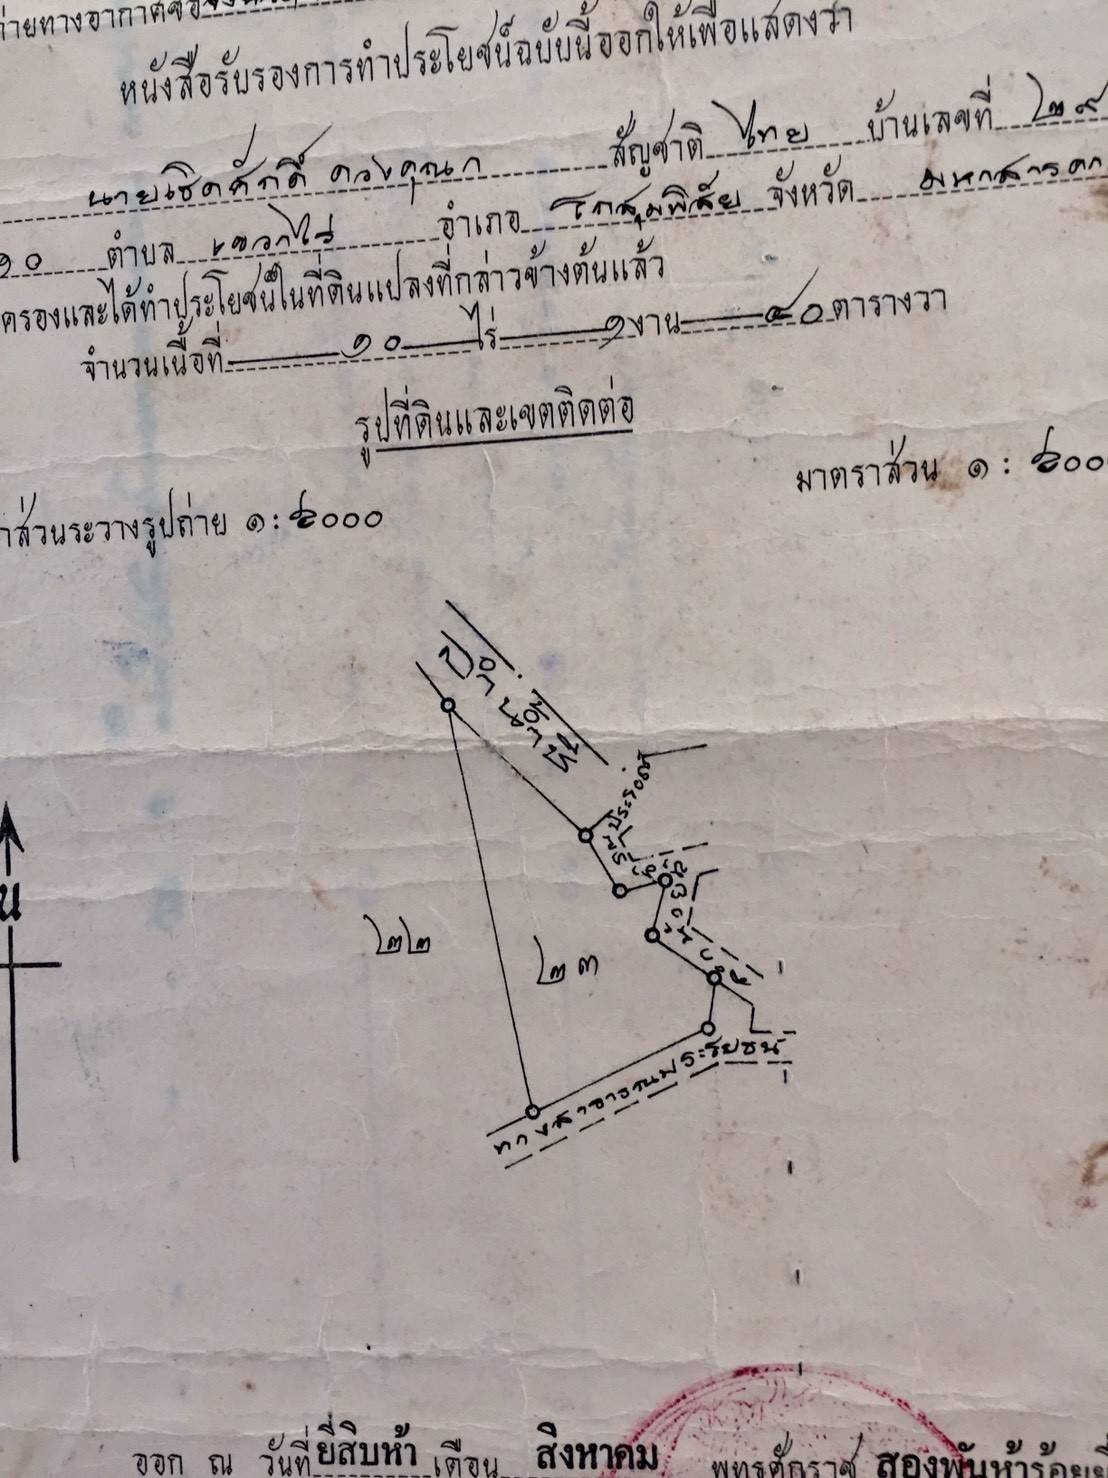 ถ่ายทางอากาศชื่อ
หนังสือรับรองการทำประโยชน์ฉบับนี้ออกให้เพื่อแสดงว่า
นายเชิดศักดิ์ สัญชาติ ไทย บ้านเลขที่ ๒๙
๑๐ ตำบล แวงไร่ อำเภอ โกสุมพิสัย จังหวัด มหาสารค
ครองและได้ทำประโยชน์ในที่ดินแปลงที่กล่าวข้างต้นแล้ว
จำนวนเนื้อที่ ๑๐ ไร่ ๑ งาน ๘๐ ตารางวา
รูปที่ดินและเขตติดต่อ
มาตราส่วน ๑ : ๖๐๐๐
าส่วนระวางรูปถ่าย ๑ : ๖๐๐๐
ประโยชน์
๒๒
๒๓
น
ทางสาธารณประโยชน์
ออก ณ วันที่ ยี่สิบห้า เดือน สิงหาคม พุทธศักราช สองพันห้าร้อยยี่